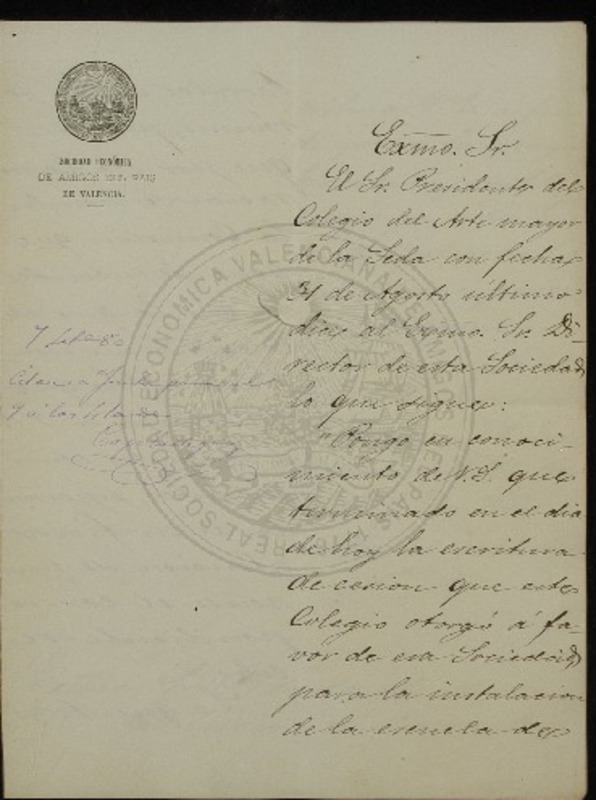 SOCIEDAD ECONÓMICA
DE AMIGOS DEL PAIS
DE VALENCIA.
Exmo. Sr.
El Sr. Presidente del
Colegio del Arte mayor
de la Seda con fecha
31 de Agosto ultimo
dice al Exmo. Sr. Di-
rector de esta Sociedad
lo que sigue:
"Pongo en conoci-
miento de V.S. que
terminado en el dia
de hoy la escritura
de cesion que este
Colegio otorgó á fa-
vor de esa Sociedad
para la instalacion
de la escuela de
7
Junta
REAL SOCIEDAD ECONOMICA VALENCIANA DE AMIGOS DEL PAIS